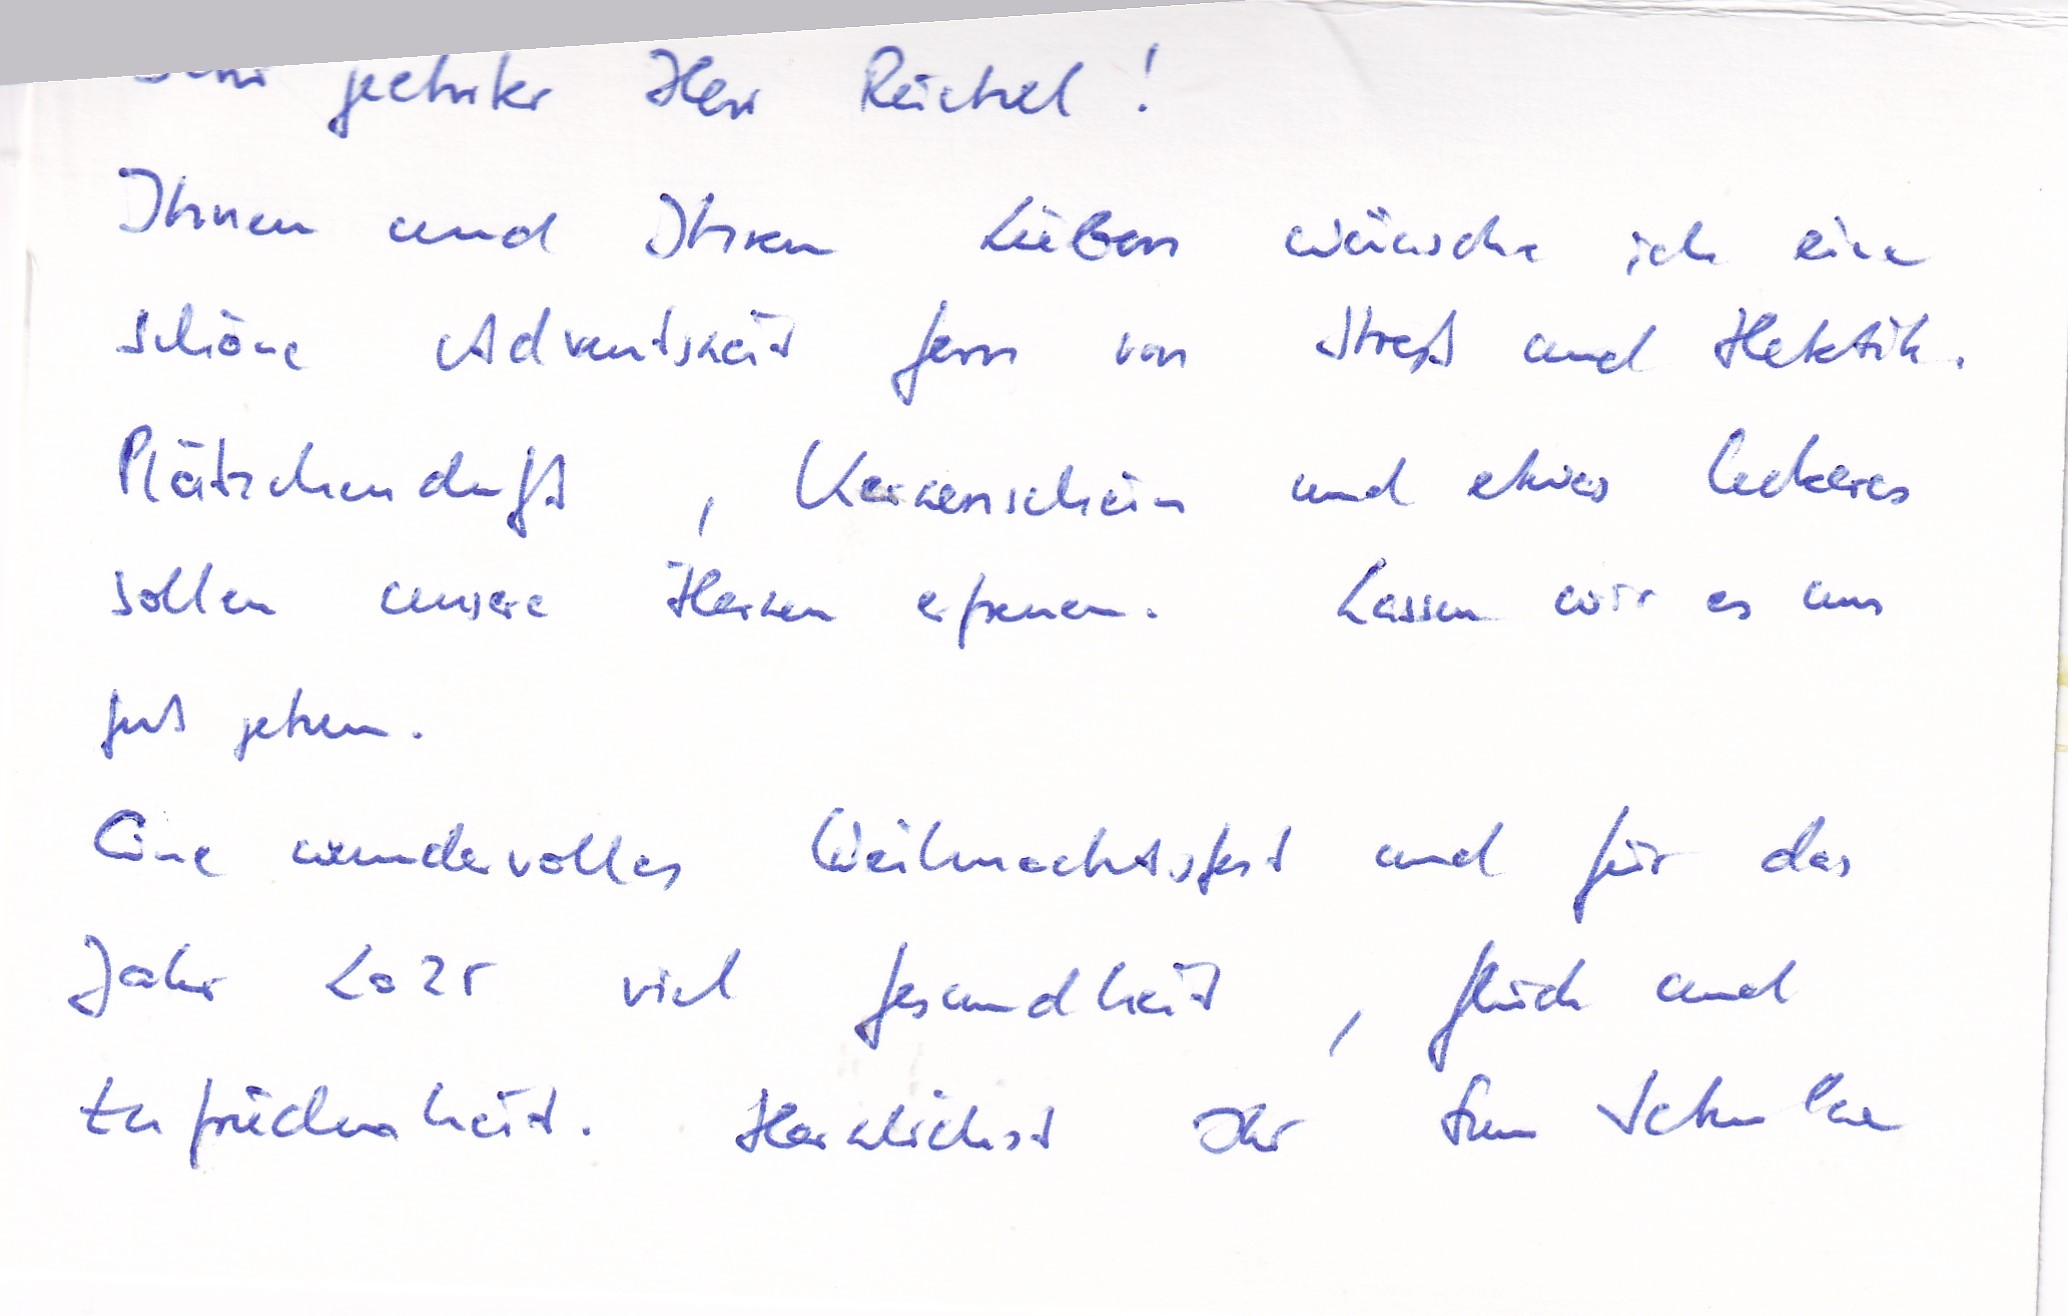 Sehr geehrter Herr Reichel!
Ihnen und Ihren Lieben wünsche ich eine
schöne Adventszeit fern von Streß und Hektik.
Plätzchenduft, Kerzenschein und etwas leckeres
sollen unsere Herzen erfreuen. Lassen wir es uns
gut gehen.
Eine wundervolles Weihnachtsfest und für das
Jahr 2025 viel Gesundheit, Glück und
Zufriedenheit. Herzlichst Ihr